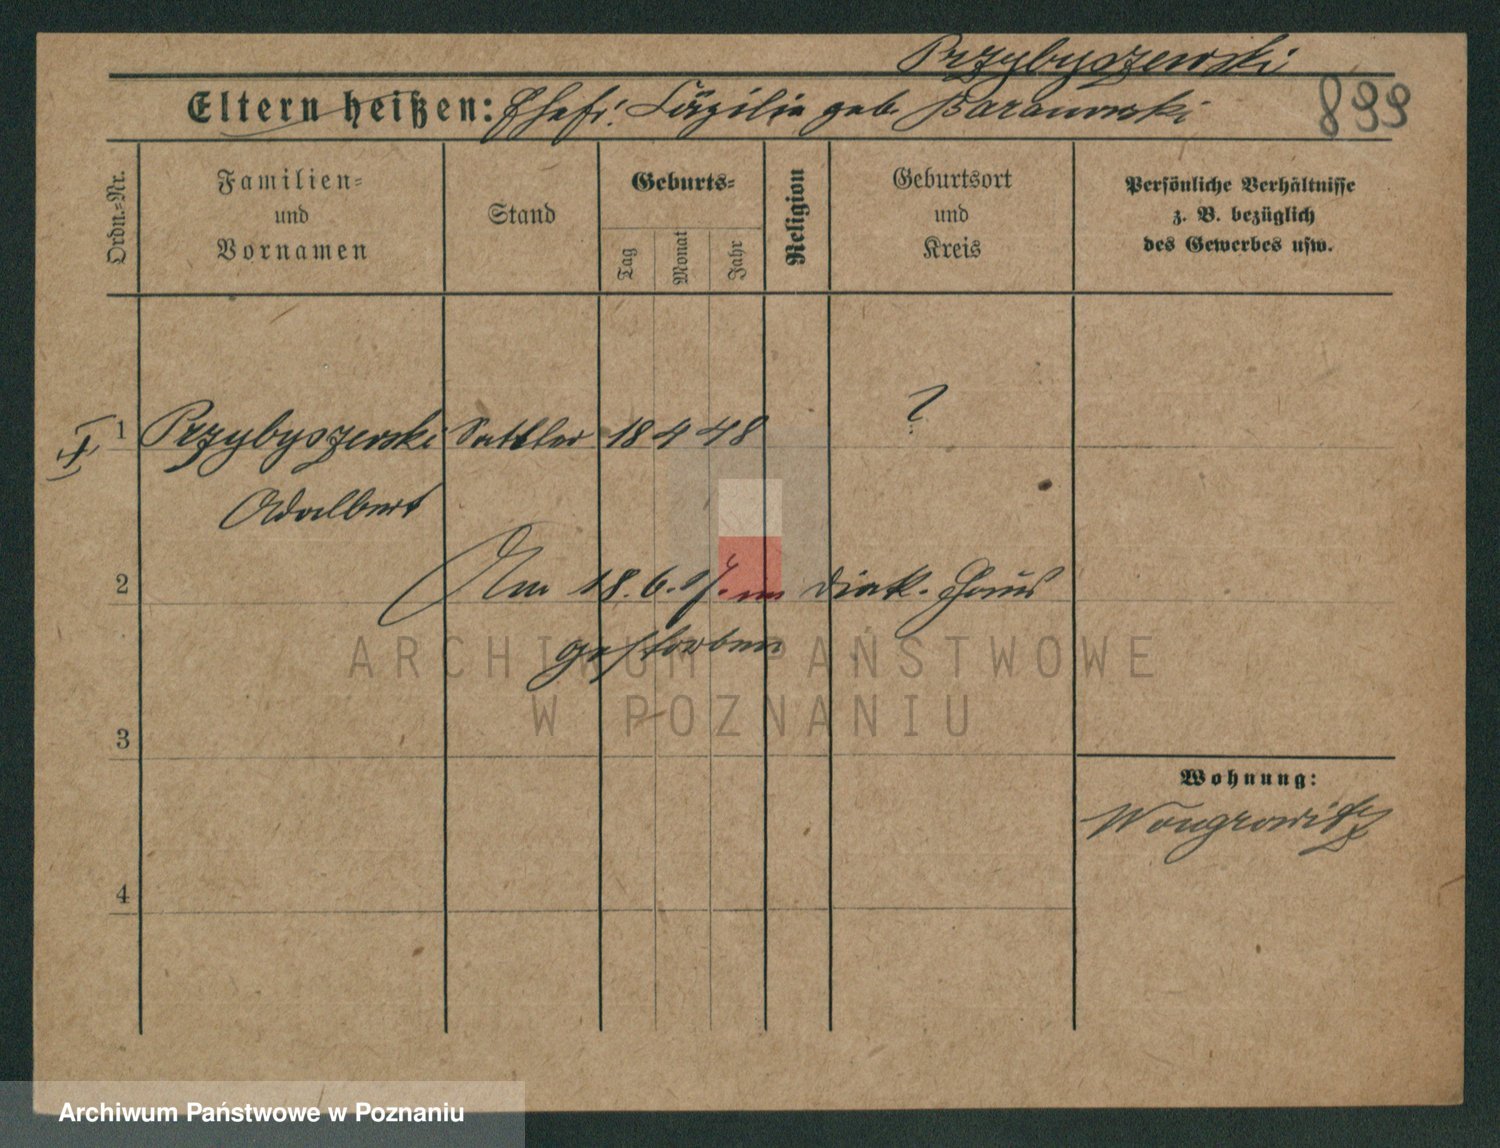 Przybyszewski
Eltern heißen: Ehefr. Cäzilie geb. Baranowski
899
Ordn.-Nr.
Familien-
und
Vornamen
Stand
Geburts-
Tag
Monat
Jahr
Religion
Geburtsort
und
Kreis
Persönliche Verhältnisse
z. B. bezüglich
des Gewerbes usw.
1 Przybyszewski Sattler 18 4 48 ?
Adalbert
2
Am 18.6.17. im Diak. Haus
gestorben
ARCHIWUM PAŃSTWOWE
W POZNANIU
3
Wohnung:
Wongrowitz
4
Archiwum Państwowe w Poznaniu